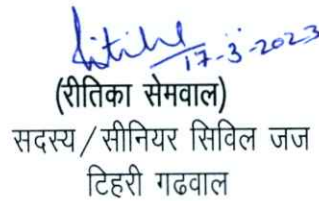 17-3-2023
(रीतिका सेमवाल)
सदस्य/सीनियर सिविल जज
टिहरी गढवाल